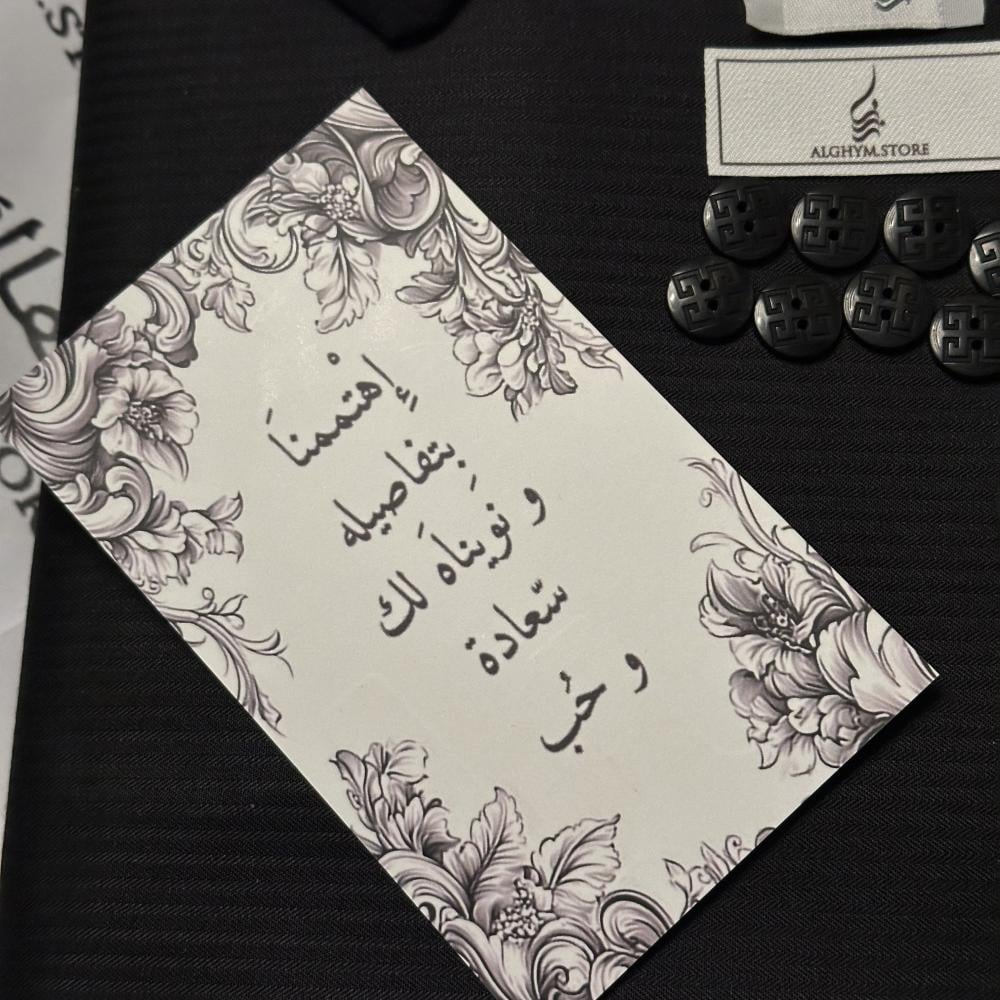 ALGHYM.STORE
إهْتممناَ
بِتفاصيله
و نويناَه لك
سّعادة
و حُب